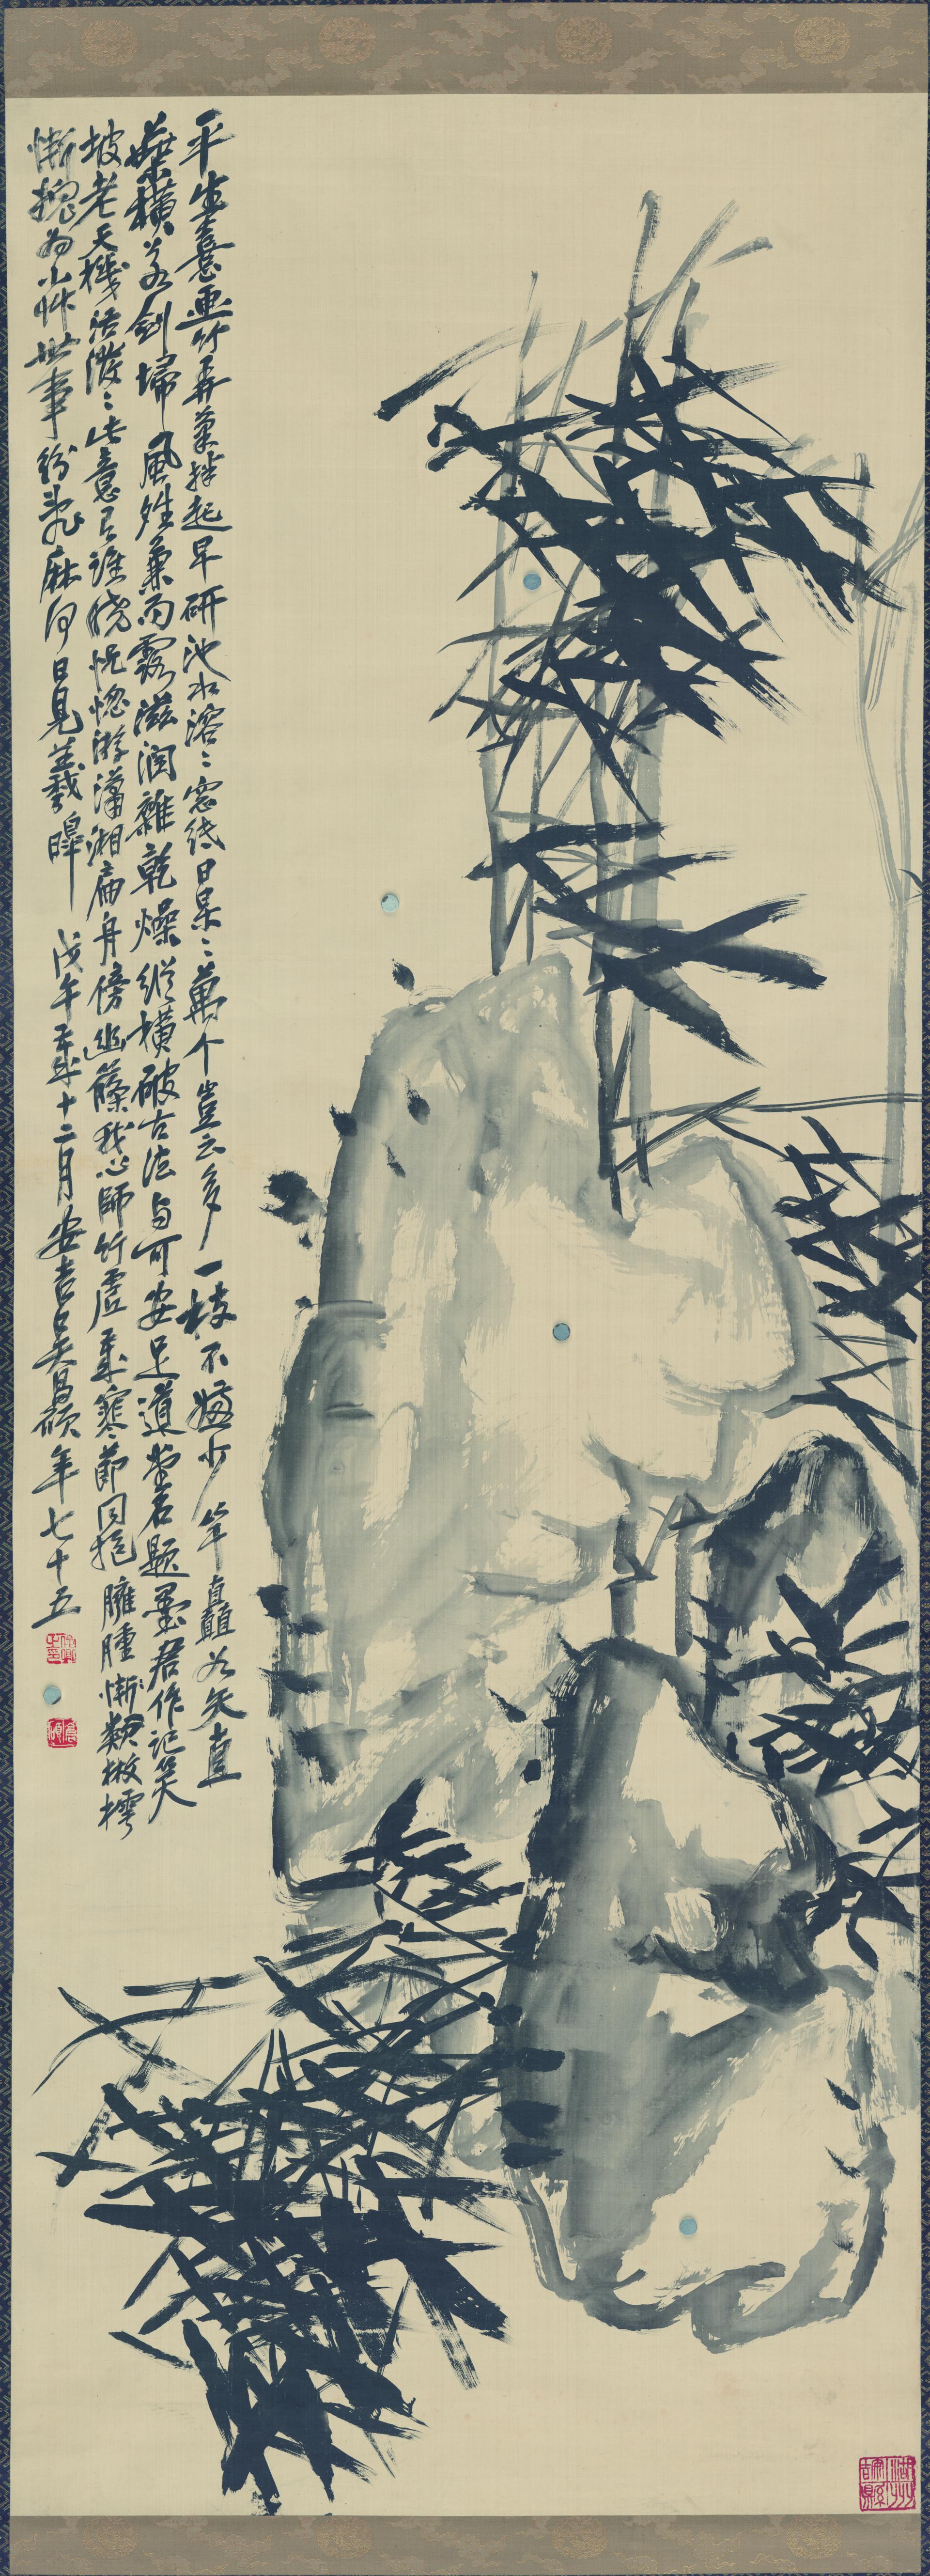 平生喜画竹弄藁拌起早研池水溶〻窓紙日杲〻萬个豈云多一枝不嫌少竿直顛如矢直
葉橫若劍掃風姓兼雨露滋潤雜乾燥縱橫破古法与可安足道堂名題墨君作記笑
坡老天機活潑〻此意只誰曉恍惚游瀟湘扁舟傍幽篠我心師竹虛垂寒節同抱臃腫慚類樗
慚媿為小草世事紛亂麻何日見羲皞戊午年十二月安吉吳昌碩年七十五